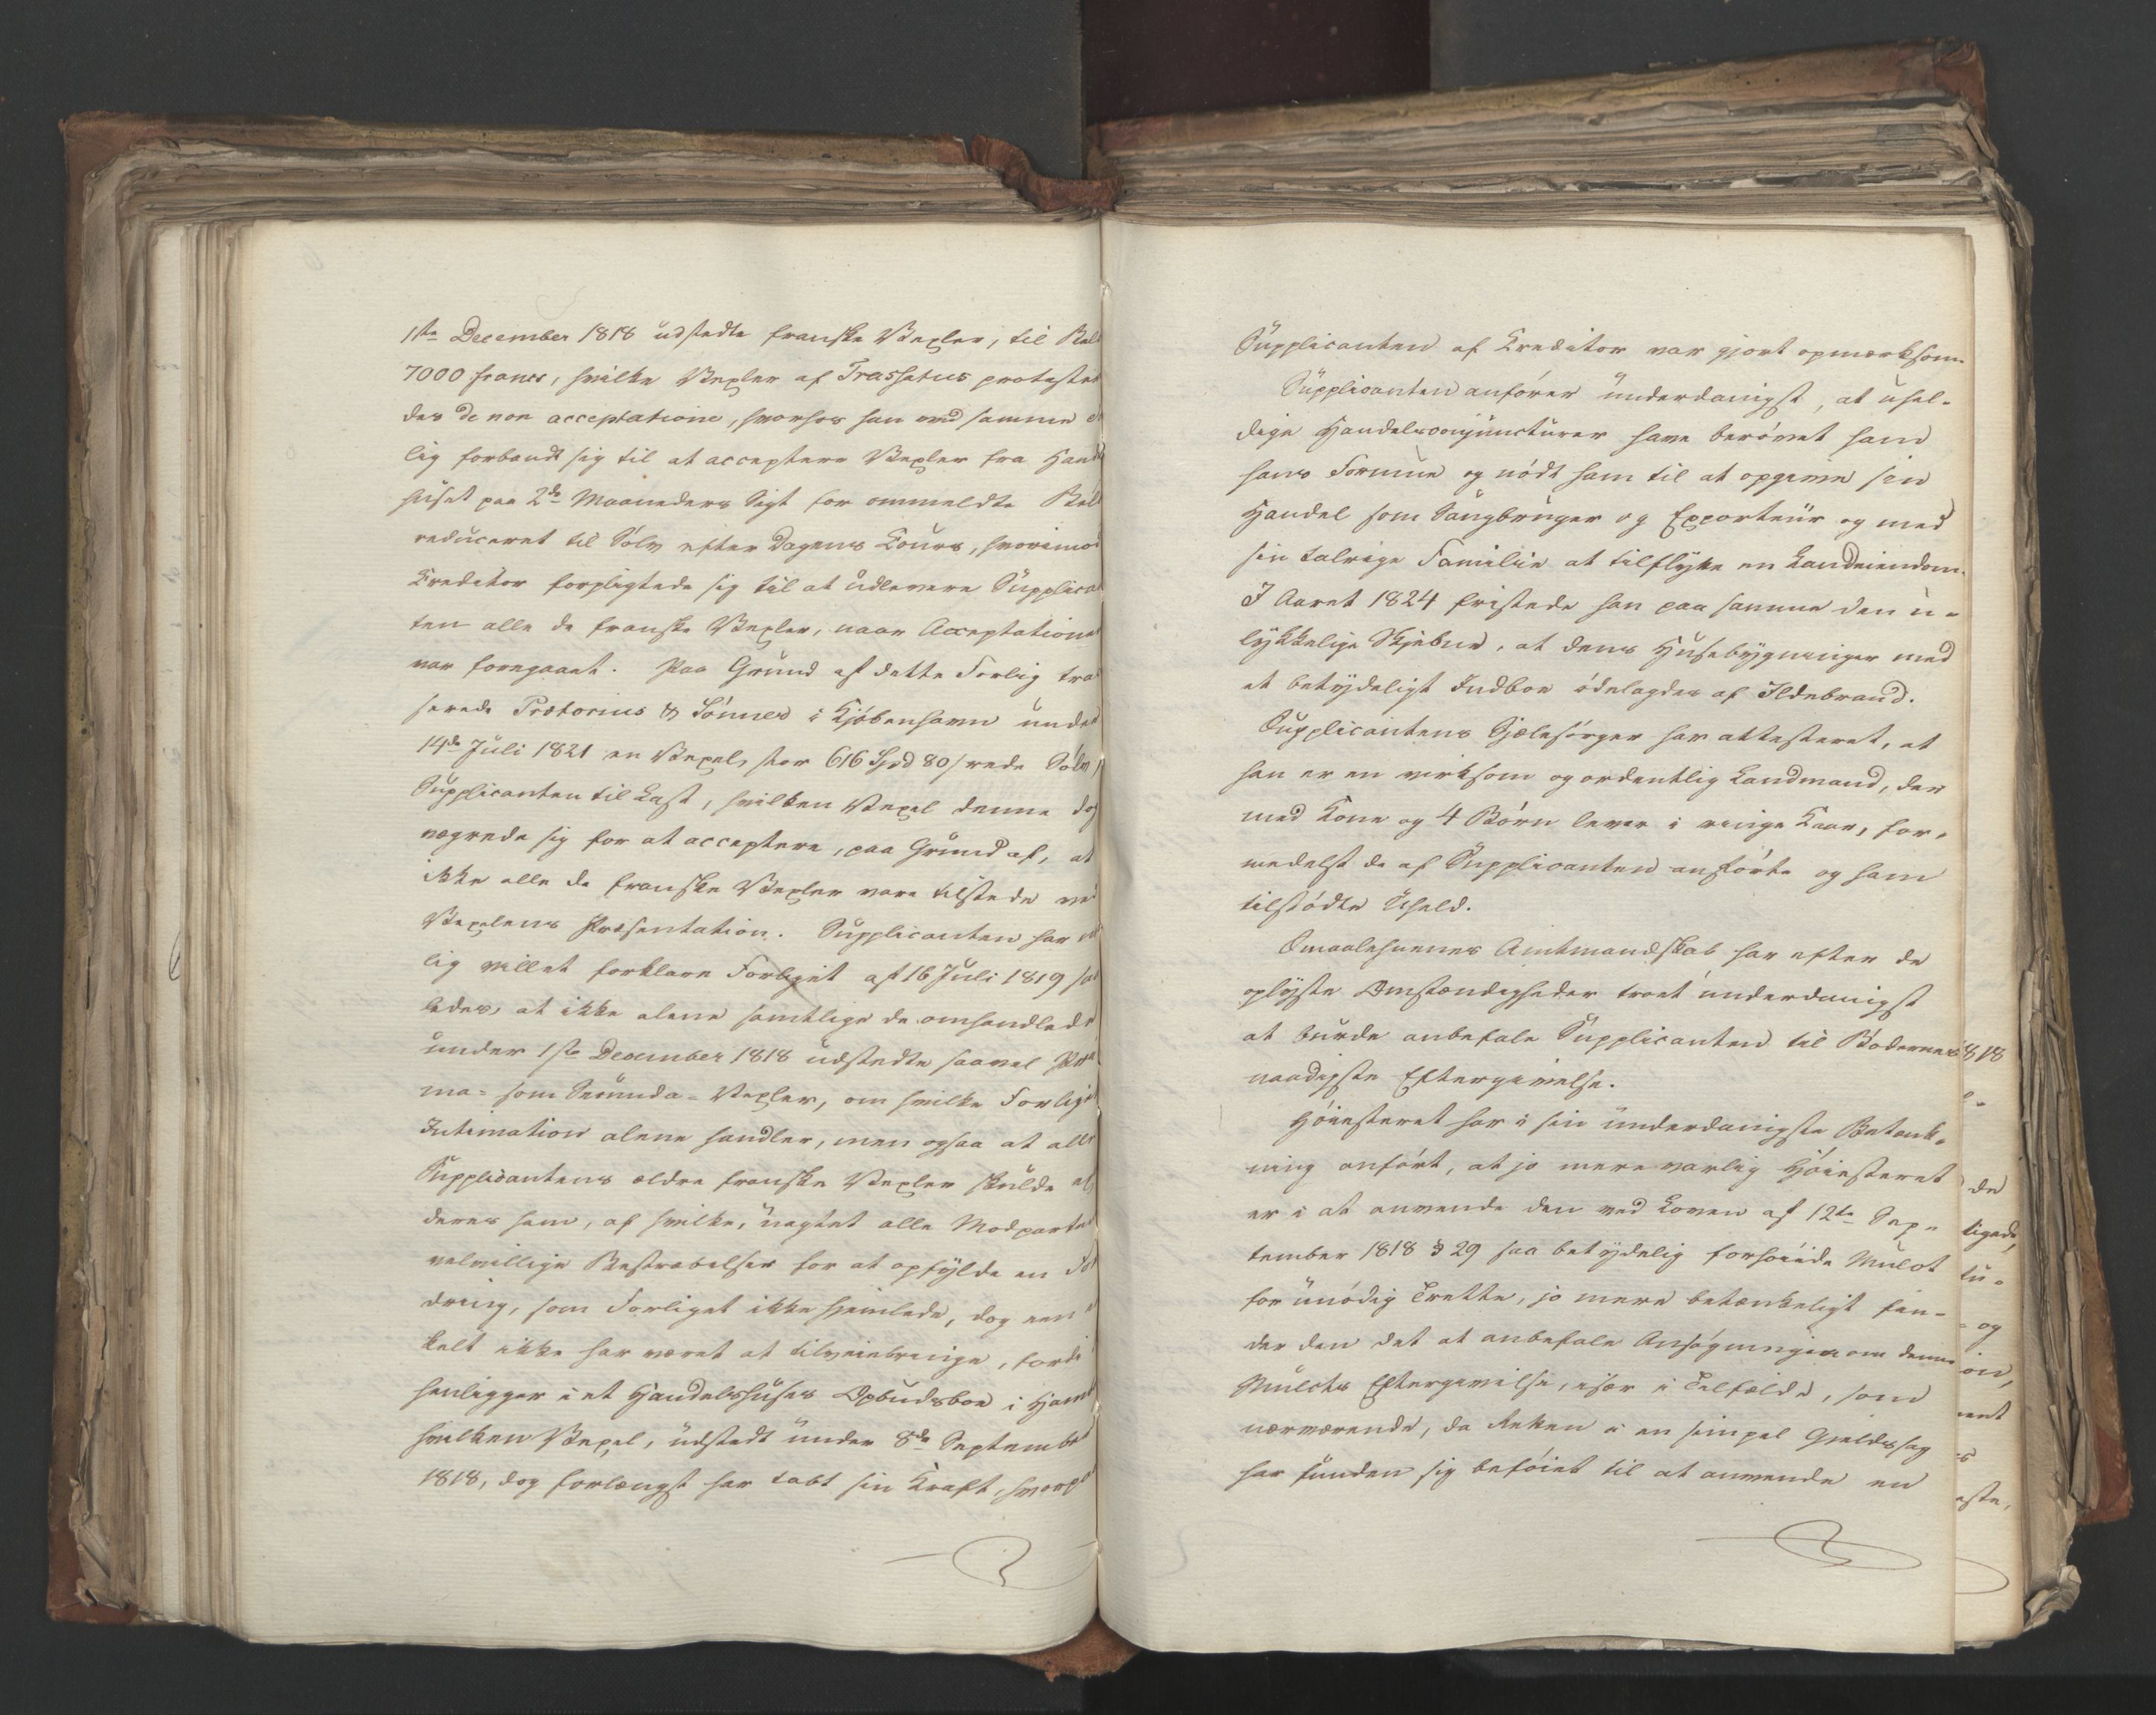 1ste December 1818 udstedte franske Vexler, til Bel
7000 francs, hvilke Vexler af Trassatus proteste
des de non acceptatione, hvorhos han ved samme
lig forbandt sig til at acceptere Vexler fra Hand
huset paa 2de Maaneders Sigt for ommeldte Bel
reduceret til Sølv efter Dagens Cours, hvorimod
Creditor forpligtede sig til at udlevere Supplica
ten alle de franske Vexler, naar Acceptationen
var foregaaet. Paa Grund af dette Forlig tra
serede Prætorius & Sønner i Kjøbenhavn under
14de Juli 1821 en Vexel, stor 616 Spd 80 s rede Sølv,
Supplicanten til Last, hvilken Vexel denne dog
vægrede sig for at acceptere, paa Grund af, at
ikke alle de franske Vexler vare tilstede ved
Vexelens Præsentation. Supplicanten har
lig villet forklare Forliget af 16 Juli 1819 saa
ledes, at ikke alene samtlige de omhandlede
under 1ste December 1818 udstedte saavel Pri
ma- som Secunda-Vexler, om hvilke Forligets
Intimation alene handler, men ogsaa at alle
Supplicantens ældre franske Vexler skulde
deres ham, af hvilke, uagtet alle Modpartens
velvillige Bestræbelser for at opfylde en For
dring, som Forliget ikke hjemlede, dog een
kelt ikke har været at tilveiebringe, fordi
henligger i et Handelshuses Opbudsboe i
hvilken Vexel, udstedt under 8de September
1818, dog forlængst har tabt sin Kraft, hvorpaa
Supplicanten af Creditor var gjort opmærksom.
Supplicanten anfører underdanigst, at uhel-
dige Handelsconjuncturer have berøvet ham
hans Formue og nødt ham til at opgive sin
Handel som Saugbruger og Exporteur og med
sin talrige Familie at tilflytte en Landeiendom.
I Aaret 1824 fristede han paa samme den u-
lykkelige Skjebne, at dens Husebygninger med
et betydeligt Indboe ødelagdes af Ildebrand.
Supplicantens Sjælesørger har attesteret, at
han er en virksom og ordentlig Landmand, der
med Kone og 4 Børn lever i ringe Kaar, for-
medelst de af Supplicanten anførte og ham
tilstødte Uheld.
Smaalehnenes Amtmandskab har efter de
oplyste Omstændigheder troet underdanigst
at burde anbefale Supplicanten til Bødernes
naadigste Eftergivelse.
Høiesteret har i sin underdanigste Betænk-
ning anført, at jo mere varlig Høiesteret
er i at anvende den ved Loven af 12te Sep-
tember 1818 § 29 saa betydelig forhøiede Mulct
for unødig Trette, jo mere betænkeligt fin-
der den det at anbefale Ansøgninger om denne
Mulcts Eftergivelse, især i Tilfælde, som
nærværende, da Retten i en simpel Gjeldssag
har funden sig beføiet til at anvende en
1818
de
ligede,
tu-
og
on,